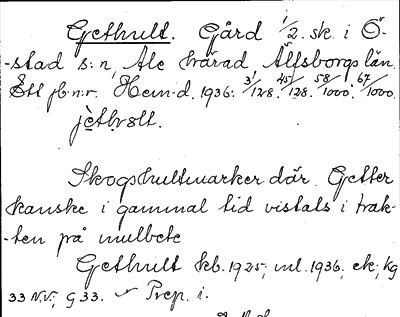 Gethult. Gård 1/2 sk. i Ö-
-stad s:n Ale härad Älfsborgs län.
Ett jb:n:r. Hem:d. 1936: 31/128. 45/128. 58/1000. 67/1000.
jèthult.
Skogshultmarker där Getter
kanske i gammal tid vistats i trak-
-ten på mulbete
Gethult skb. 1925; ml. 1936, ek; kg
33 N.V; G 33. Prep. i.